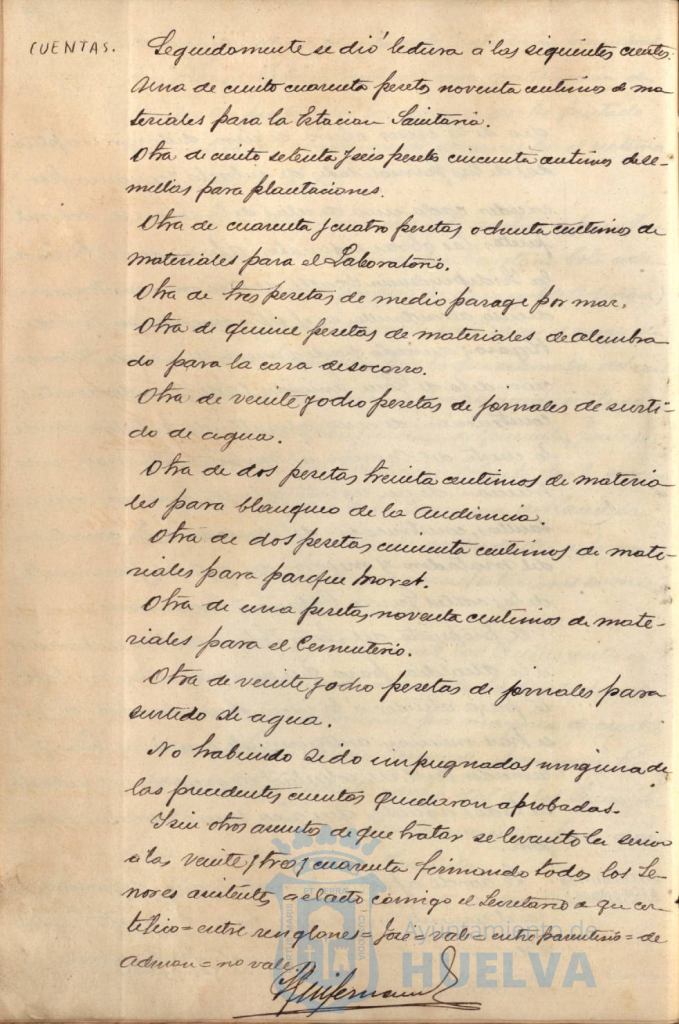 CUENTAS.
Seguidamente se dió lectura á las siguientes cuentas.
Una de ciento cuarenta pesetas noventa centimos de ma
teriales para la Estacion Sanitaria.
Otra de ciento setenta y seis pesetas cincuenta centimos de se-
millas para plantaciones.
Otra de cuarenta y cuatro pesetas ochenta centimos de
materiales para el Laboratorio.
Otra de tres pesetas de medio parage por mar.
Otra de quince pesetas de materiales de alumbra
do para la casa de socorro.
Otra de veinte y ocho pesetas de jornales de surti-
do de agua.
Otra de dos pesetas treinta centimos de materia
les para blanqueo de la Audiencia.
Otra de dos pesetas cincuenta centimos de mate-
riales para parque Moret.
Otra de una peseta noventa centimos de mate-
riales para el Cementerio.
Otra de veinte y ocho pesetas de jornales para
surtido de agua.
No habiendo sido impugnadas ninguna de
las precedentes cuentas quedaron aprobadas.
Y sin otros asuntos de que tratar se levanto la sesion
á las veinte y tres y cuarenta firmando todos los Se-
ñores asistentes al acto comigo el Secretario de que cer-
tifico = entre renglones = José = vale = entre parentesis = de
= no vale
Ayuntamiento de
HUELVA